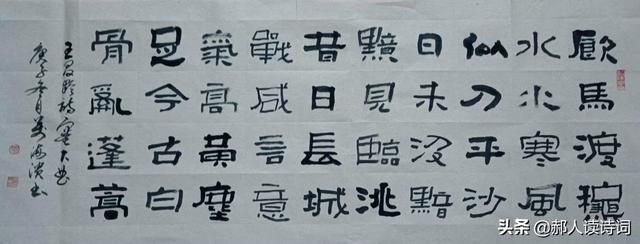 飲馬渡龝
水水寒風
似刀平沙
日未没黯
黯見臨洮
昔日長城
戰咸言意
氣高黃塵
足今古白
骨亂蓬蒿
王昌齡詩塞下曲
庚子冬月
头条 @郝人读诗词